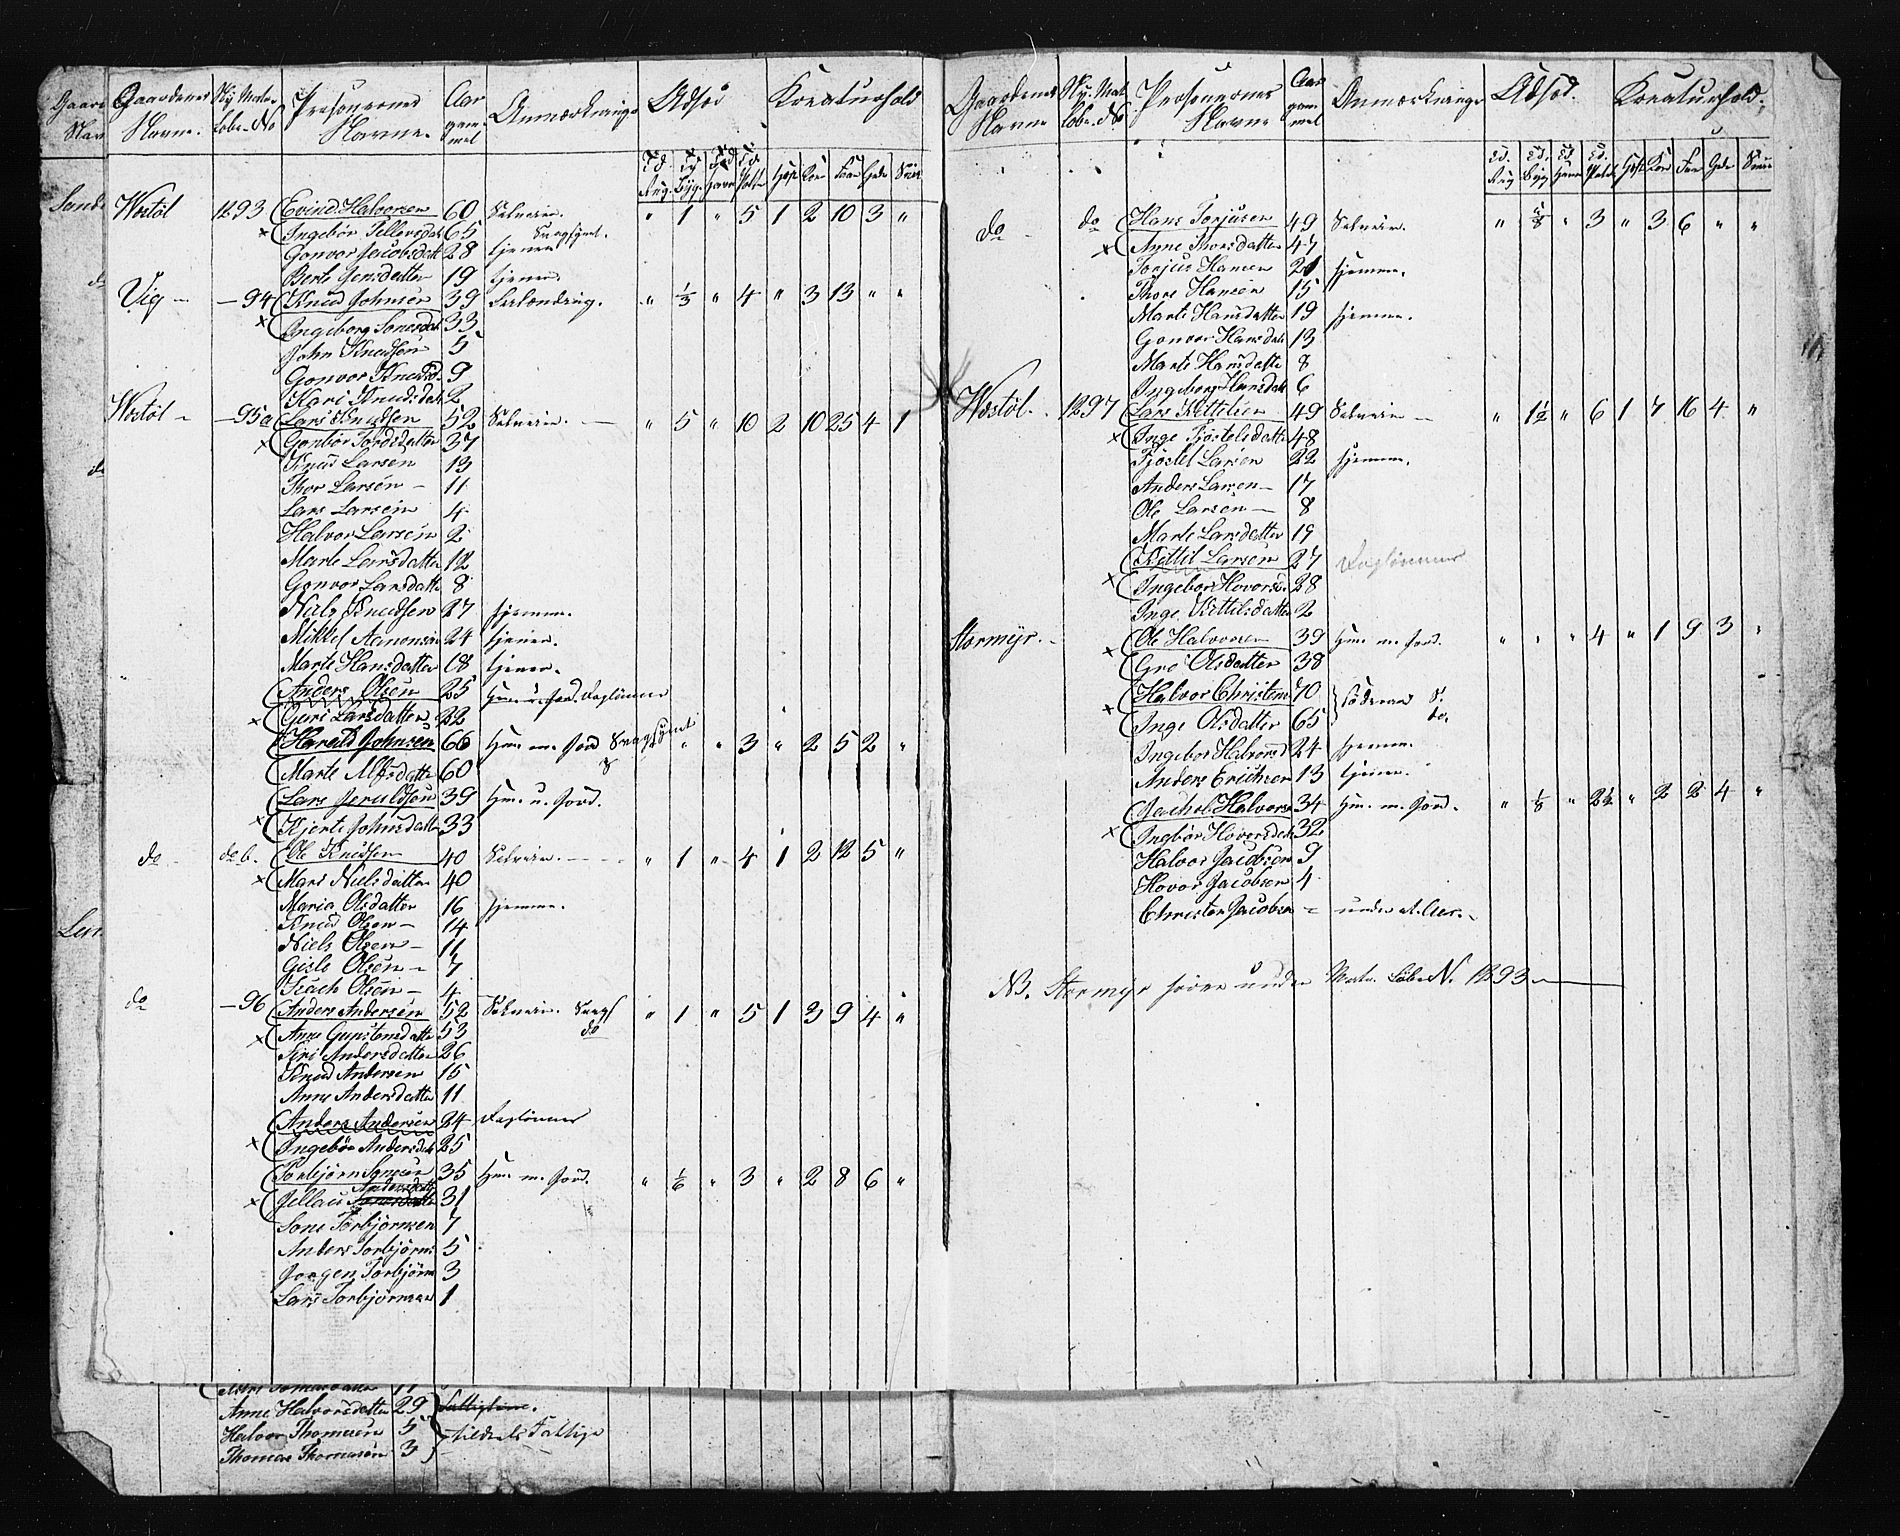 Gaardenes Navne. Ny Matr. Løbe-No Personernes Navne. Aar gammel Anmærkninger Udsæd Kreaturhold
Td. Rug. Td Byg. Td Havre Td. Potet Hest Køer Faar Geder Sviin
Wostøl 1293 Evind Halvorsen 60 Selveier. " 1 " 5 1 2 10 3 "
Ingebør Tellevsdat 65 Svagsynt.
Gonvor Jacobsdatt 28 tjener
Berte Jensdatter 19 tjener.
Vig - - 94 Knud Johnsen 39 Leilending. " 1/3 " 4 " 3 13 " "
Ingeborg Sonesdat 33
John Knudsen 5
Gonvor Knudsd. 9
Kari Knudsdatt 2
Wostøl - - 95a Lars Knudsen 52 Selveier. " 5 " 10 2 10 25 4 1
Gonbør Tordsdatter 37
Knud Larsen 13
Thor Larsen - 11
Lars Larsen 4
Halvor Larsen 2
Marte Larsdatter 12
Gonvor Larsdatte 8
Niels Knudsen 27 hjemme.
Mikkel Aanonsen 24 tjener.
Marte Hansdatter 18 tjener.
Anders Olsen 25 Huusm. u. Jord. Dagløner
Guri Larsdatter 22
Harald Johnsen 66 Huusm. m. Jord Svagsynt " " " 3 " 2 5 2 "
Marte Alfsdatte 60
Lars Jeruldsen 39 Huusm. u. Jord.
Kjerti Johnsdatte 33
do do b. Ole Knudsen 40 Selveier. " 1 " 4 1 2 12 5 "
Mari Nielsdatter 40
Maria Olsdatter 16 hjemme.
Knud Olsen - 14
Niels Olsen - 11
Gisle Olsen - 7
Isach Olsen - 4
do - 96 Anders Andersen 52 Selveier. Svags " 1 " 5 1 3 9 4 "
Anne Gunstensdatte 53 do
Siri Andersdatter 26
Knud Andersen 15
Anne Andersdatter 11
Anders Andersen 24 Dagløner
Ingebør Andersdatt 25
Torbjørn Sonesen 35 Huusm. m. Jord. " 1/6 " 3 " 2 8 6 "
Andersdatte
Jellau 31
Sone Torbjørnsen 7
Anders Torbjørns 5
Jørgen Torbjørns 3
Lars Torbjørnsen 1
Anne Halvorsdatter 29 Fattiglem.
Halvor Thomesen 5
Thomas Thomasen 3 tildeels Fattige
Gaardenes Navne Ny. Mat. Løbe. No Personernes Navne Aar gammel Anmærkninge Udsæd. Kreaturhold.
Td. Rug Td. Byg Td Havre Td. Potet Hest Køer Faar Geder Sviin
do - do Hans Torjusen 49 Selveier. " 5/8 " 3 " 3 6 " "
Anne Thorsdatter 47
Torjus Hansen 21 hjemme.
Thore Hansen 15
Marte Hansdatter 19 hjemme.
Gonvor Hansdatt 13
Marte Hansdatte 8
Ingeborg Hansdatt 6
Wostøl. 1297 Lars Kittilsen 49 Selveier - " 1½ " 6 1 7 16 4 "
Inge Fjøstelsdatte 48
Fjøstel Larsen 22 hjemme.
Anders Larsen - 17
Ole Larsen - 8
Marte Larsdatter 19
Kittil Larsen 27 Dagløner
Ingebor Hovorsd 28
Inge Kittilsdatter 2
Stormyr. - Ole Halvorsen 39 Huusm. m. Jord. " " " 4 " 1 9 3 "
Gro Olsdatter 38
Halvor Christens 70 Føderaad
Inge Olsdatter 65 do.
Ingebor Halvorsd 24 hjemme.
Anders Erichsen 13 tjener.
Jachob Halvorse 34 Huusm. m. Jord. " 1/8 " 2½ " 2 2 4 "
Ingbør Hovorsdatt 32
Halvor Jacobsen 9
Hovor Jacobsen 4
Christen Jacobsen - under et Aar.
NB. Stormyr hører under Matr. Løbe N. 1293